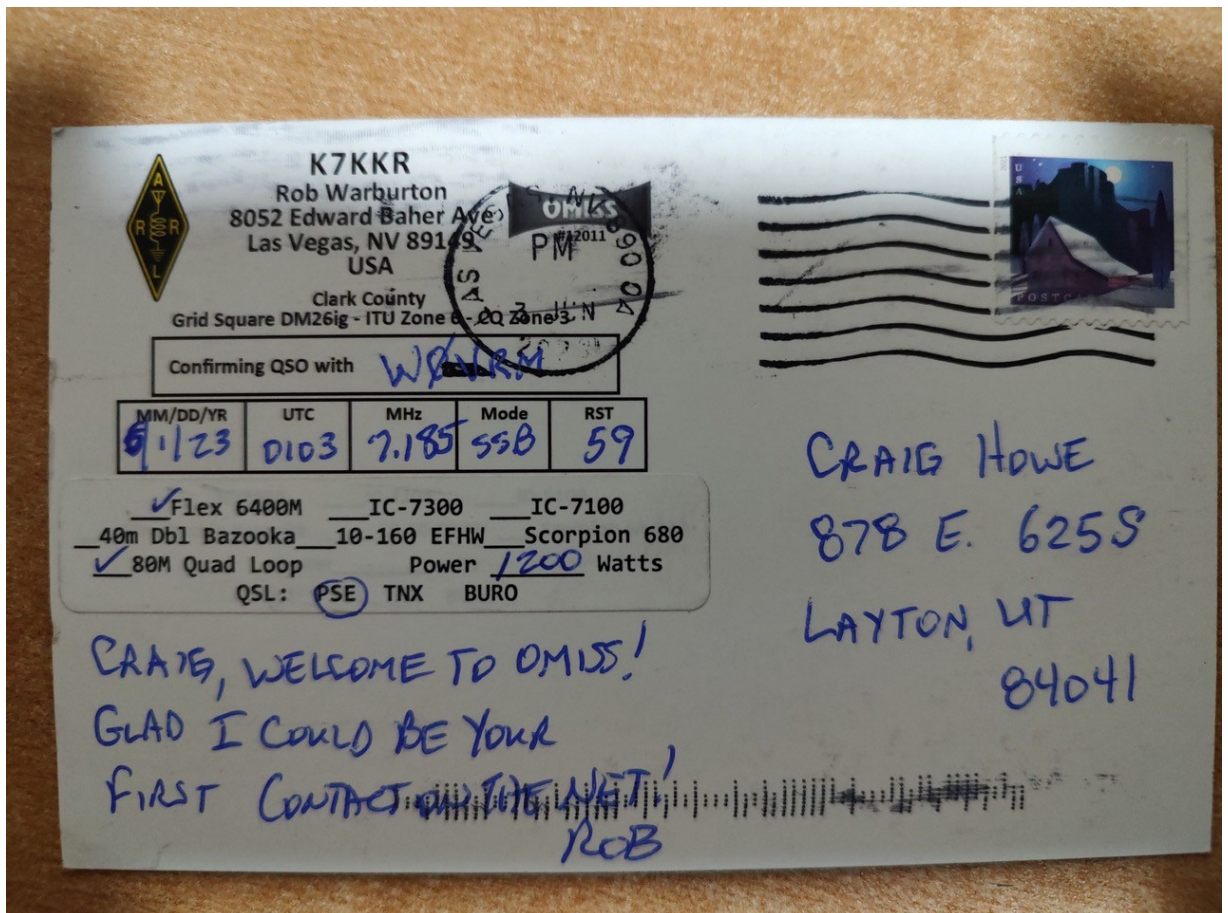 A
R R
L
K7KKR
Rob Warburton
8052 Edward Baher Ave
Las Vegas, NV 89149
USA
OMISS
#12011
PM
Clark County
Grid Square DM26ig - ITU Zone 6 - CQ Zone 3
3 JUN
Confirming QSO with WØVRM
MM/DD/YR UTC MHz Mode RST
6/1/23 0103 7.185 SSB 59
✓Flex 6400M ___IC-7300 ___IC-7100
__40m Dbl Bazooka___10-160 EFHW___Scorpion 680
✓80M Quad Loop Power 1200 Watts
QSL: PSE TNX BURO
CRAIG, WELCOME TO OMISS!
GLAD I COULD BE YOUR
FIRST CONTACT ON THE NET!
ROB
USA
POSTC
CRAIG HOWE
878 E. 625 S
LAYTON, UT
84041